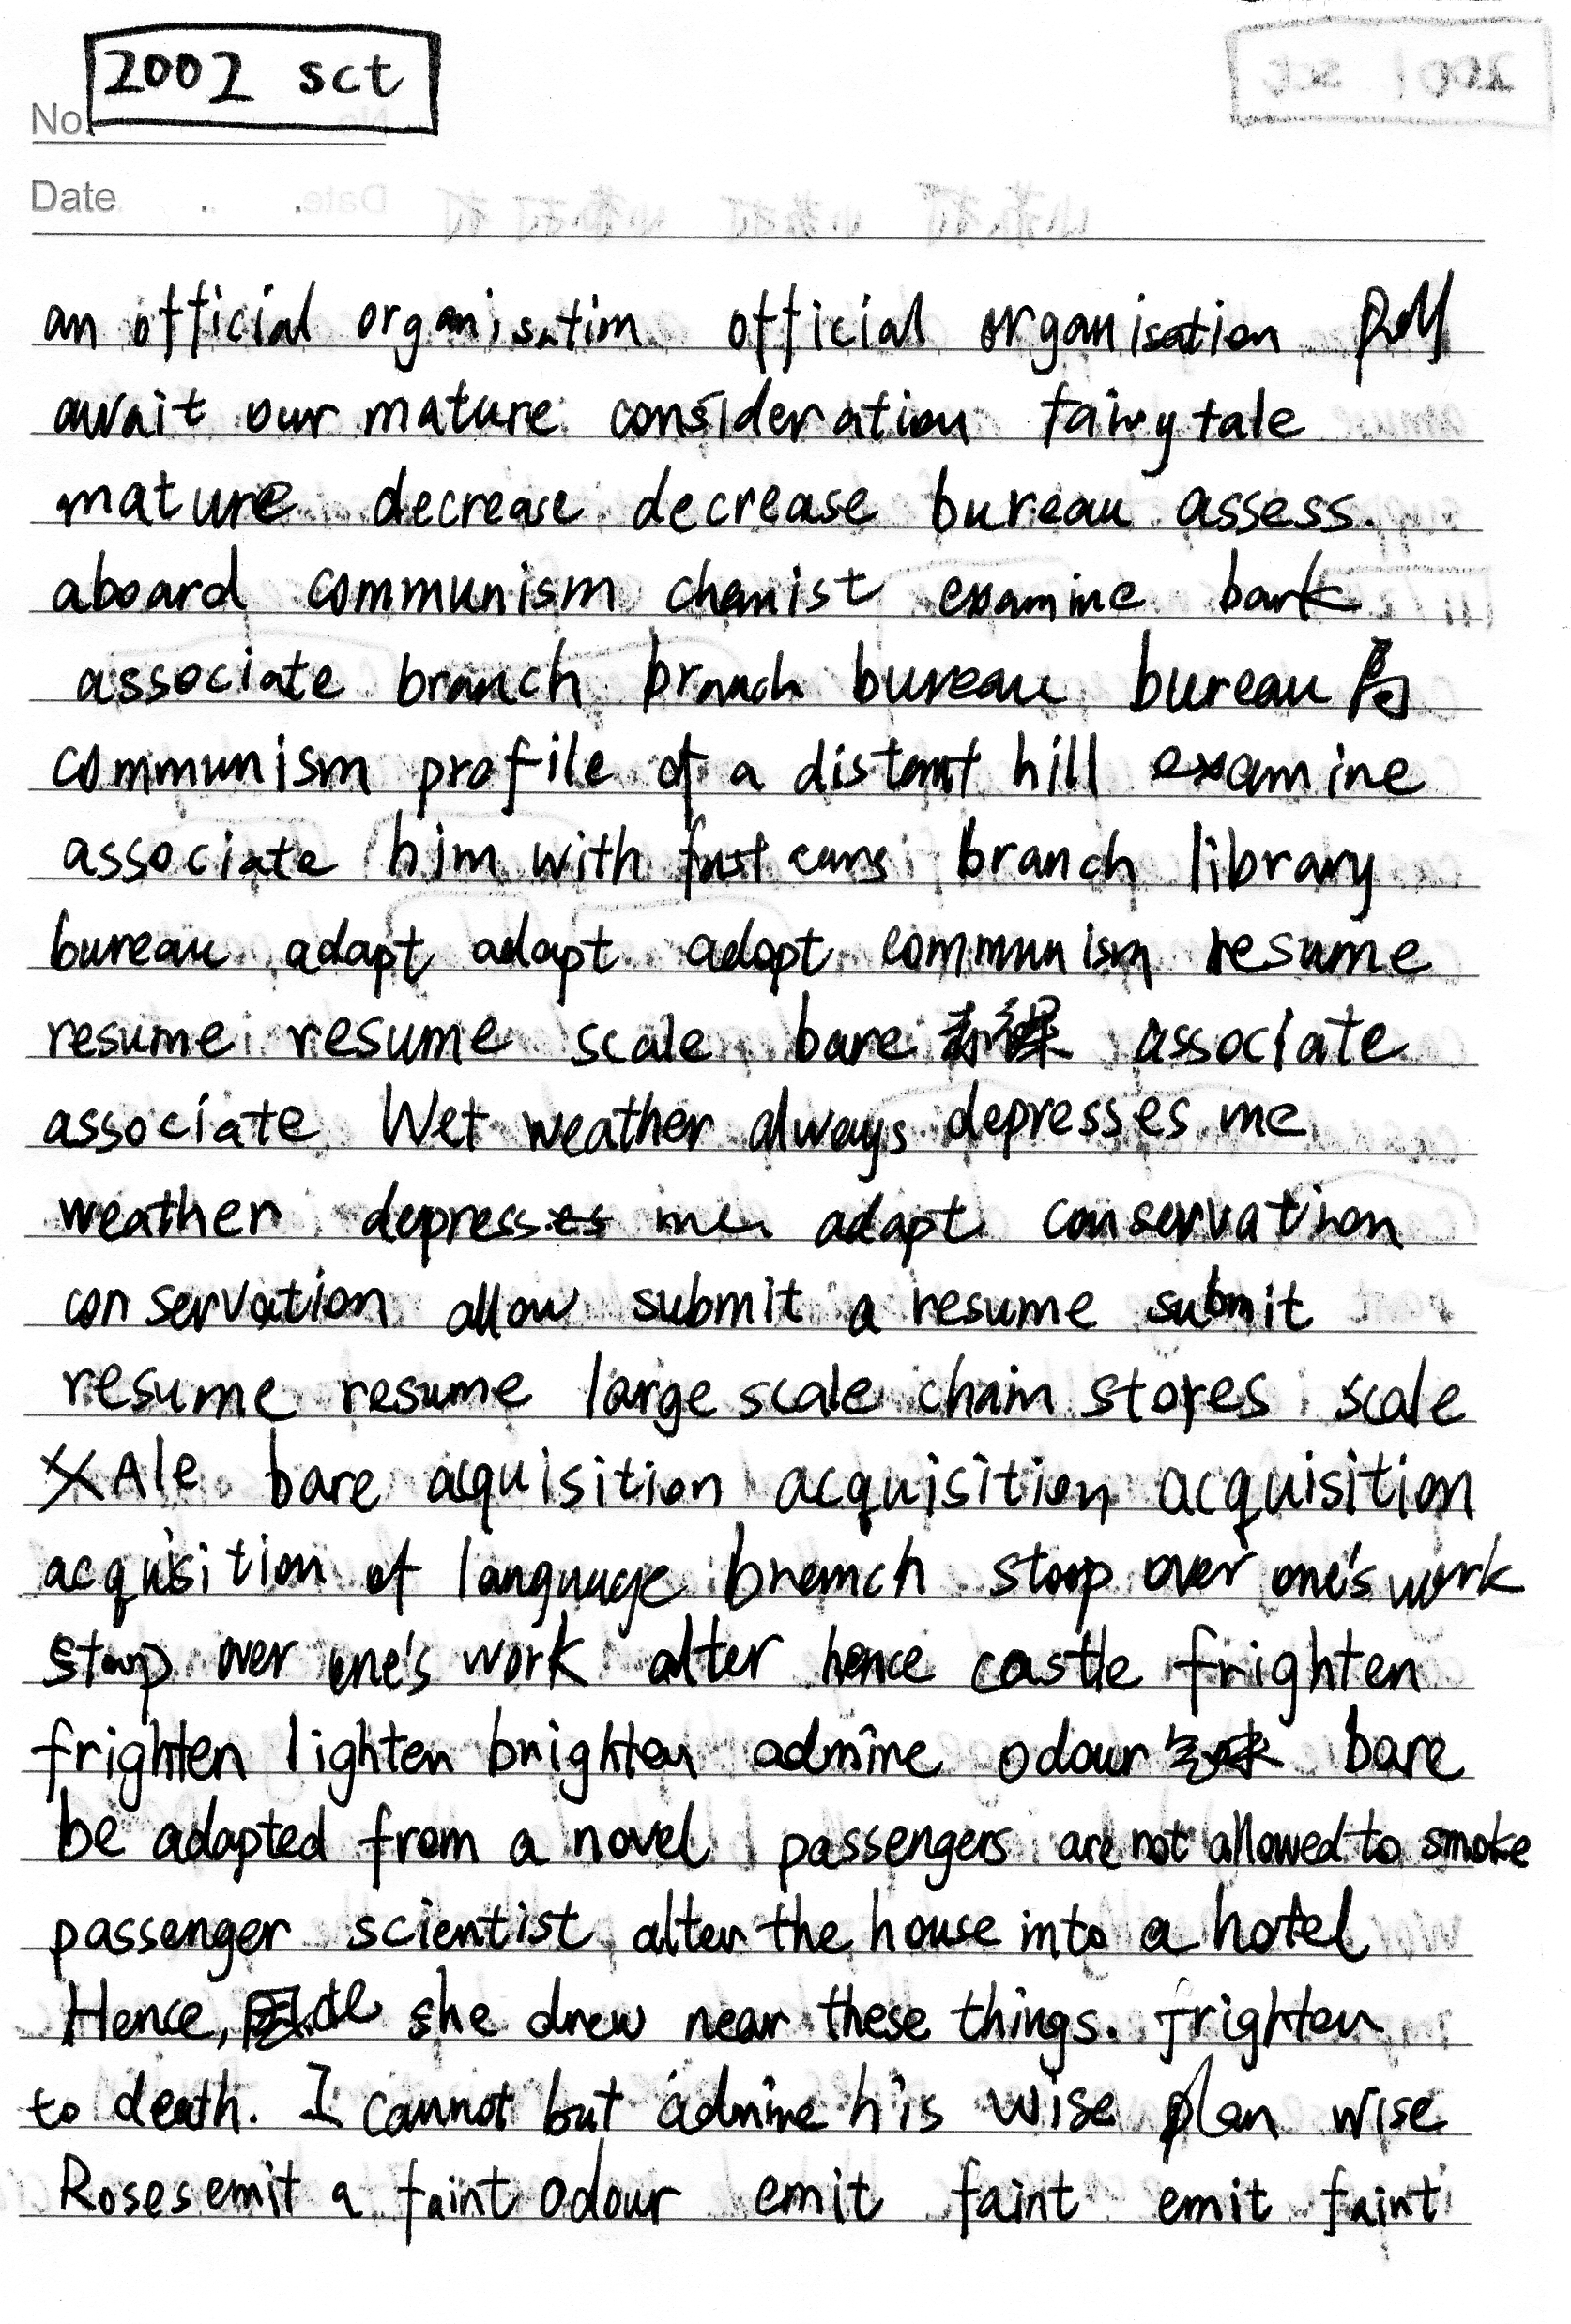 2002 sct
No.
Date
an official organisation official organisation
await our mature consideration fairy tale
mature decrease decrease bureau assess.
aboard communism chemist examine bark
associate branch branch bureau bureau 局
communism profile of a distant hill examine
associate him with fast cars branch library
bureau adapt adapt adopt communism resume
resume resume scale bare 赤裸 associate
associate Wet weather always depresses me
weather depresses me adapt conservation
conservation allow submit a resume submit
resume resume large scale chain stores scale
bare acquisition acquisition acquisition
acquisition of language branch stoop over one's work
stoop over one's work alter hence castle frighten
frighten lighten brighten admire odour 气味 bare
be adapted from a novel passengers are not allowed to smoke
passenger scientist alter the house into a hotel
Hence, 因此 she drew near these things. frighten
to death. I cannot but admire his wise plan wise
Roses emit a faint odour emit faint emit faint